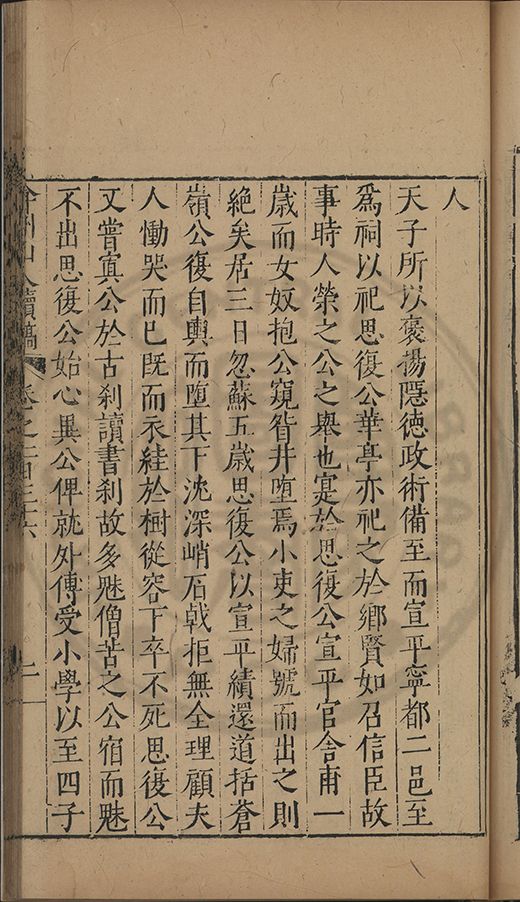 人
天子所以襃揚隱德政術備至而宣平寧都二邑至
爲祠以祀思復公華亭亦祀之於鄉賢如召信臣故
事時人榮之公之舉也寔於思復公宣平官舍甫一
歲而女奴抱公窺眢井墮焉小吏之婦號而出之則
絶矣居三日忽蘇五歲思復公以宣平績還道括蒼
嶺公復自輿而墮其下沈深峭石戟拒無全理顧夫
人慟哭而已既而衣絓於樹從容下卒不死思復公
又嘗寘公於古刹讀書刹故多魅僧苦之公宿而魅
不出思復公始心異公俾就外傅受小學以至四子
弇州山人續稿 卷之一百三十六 二